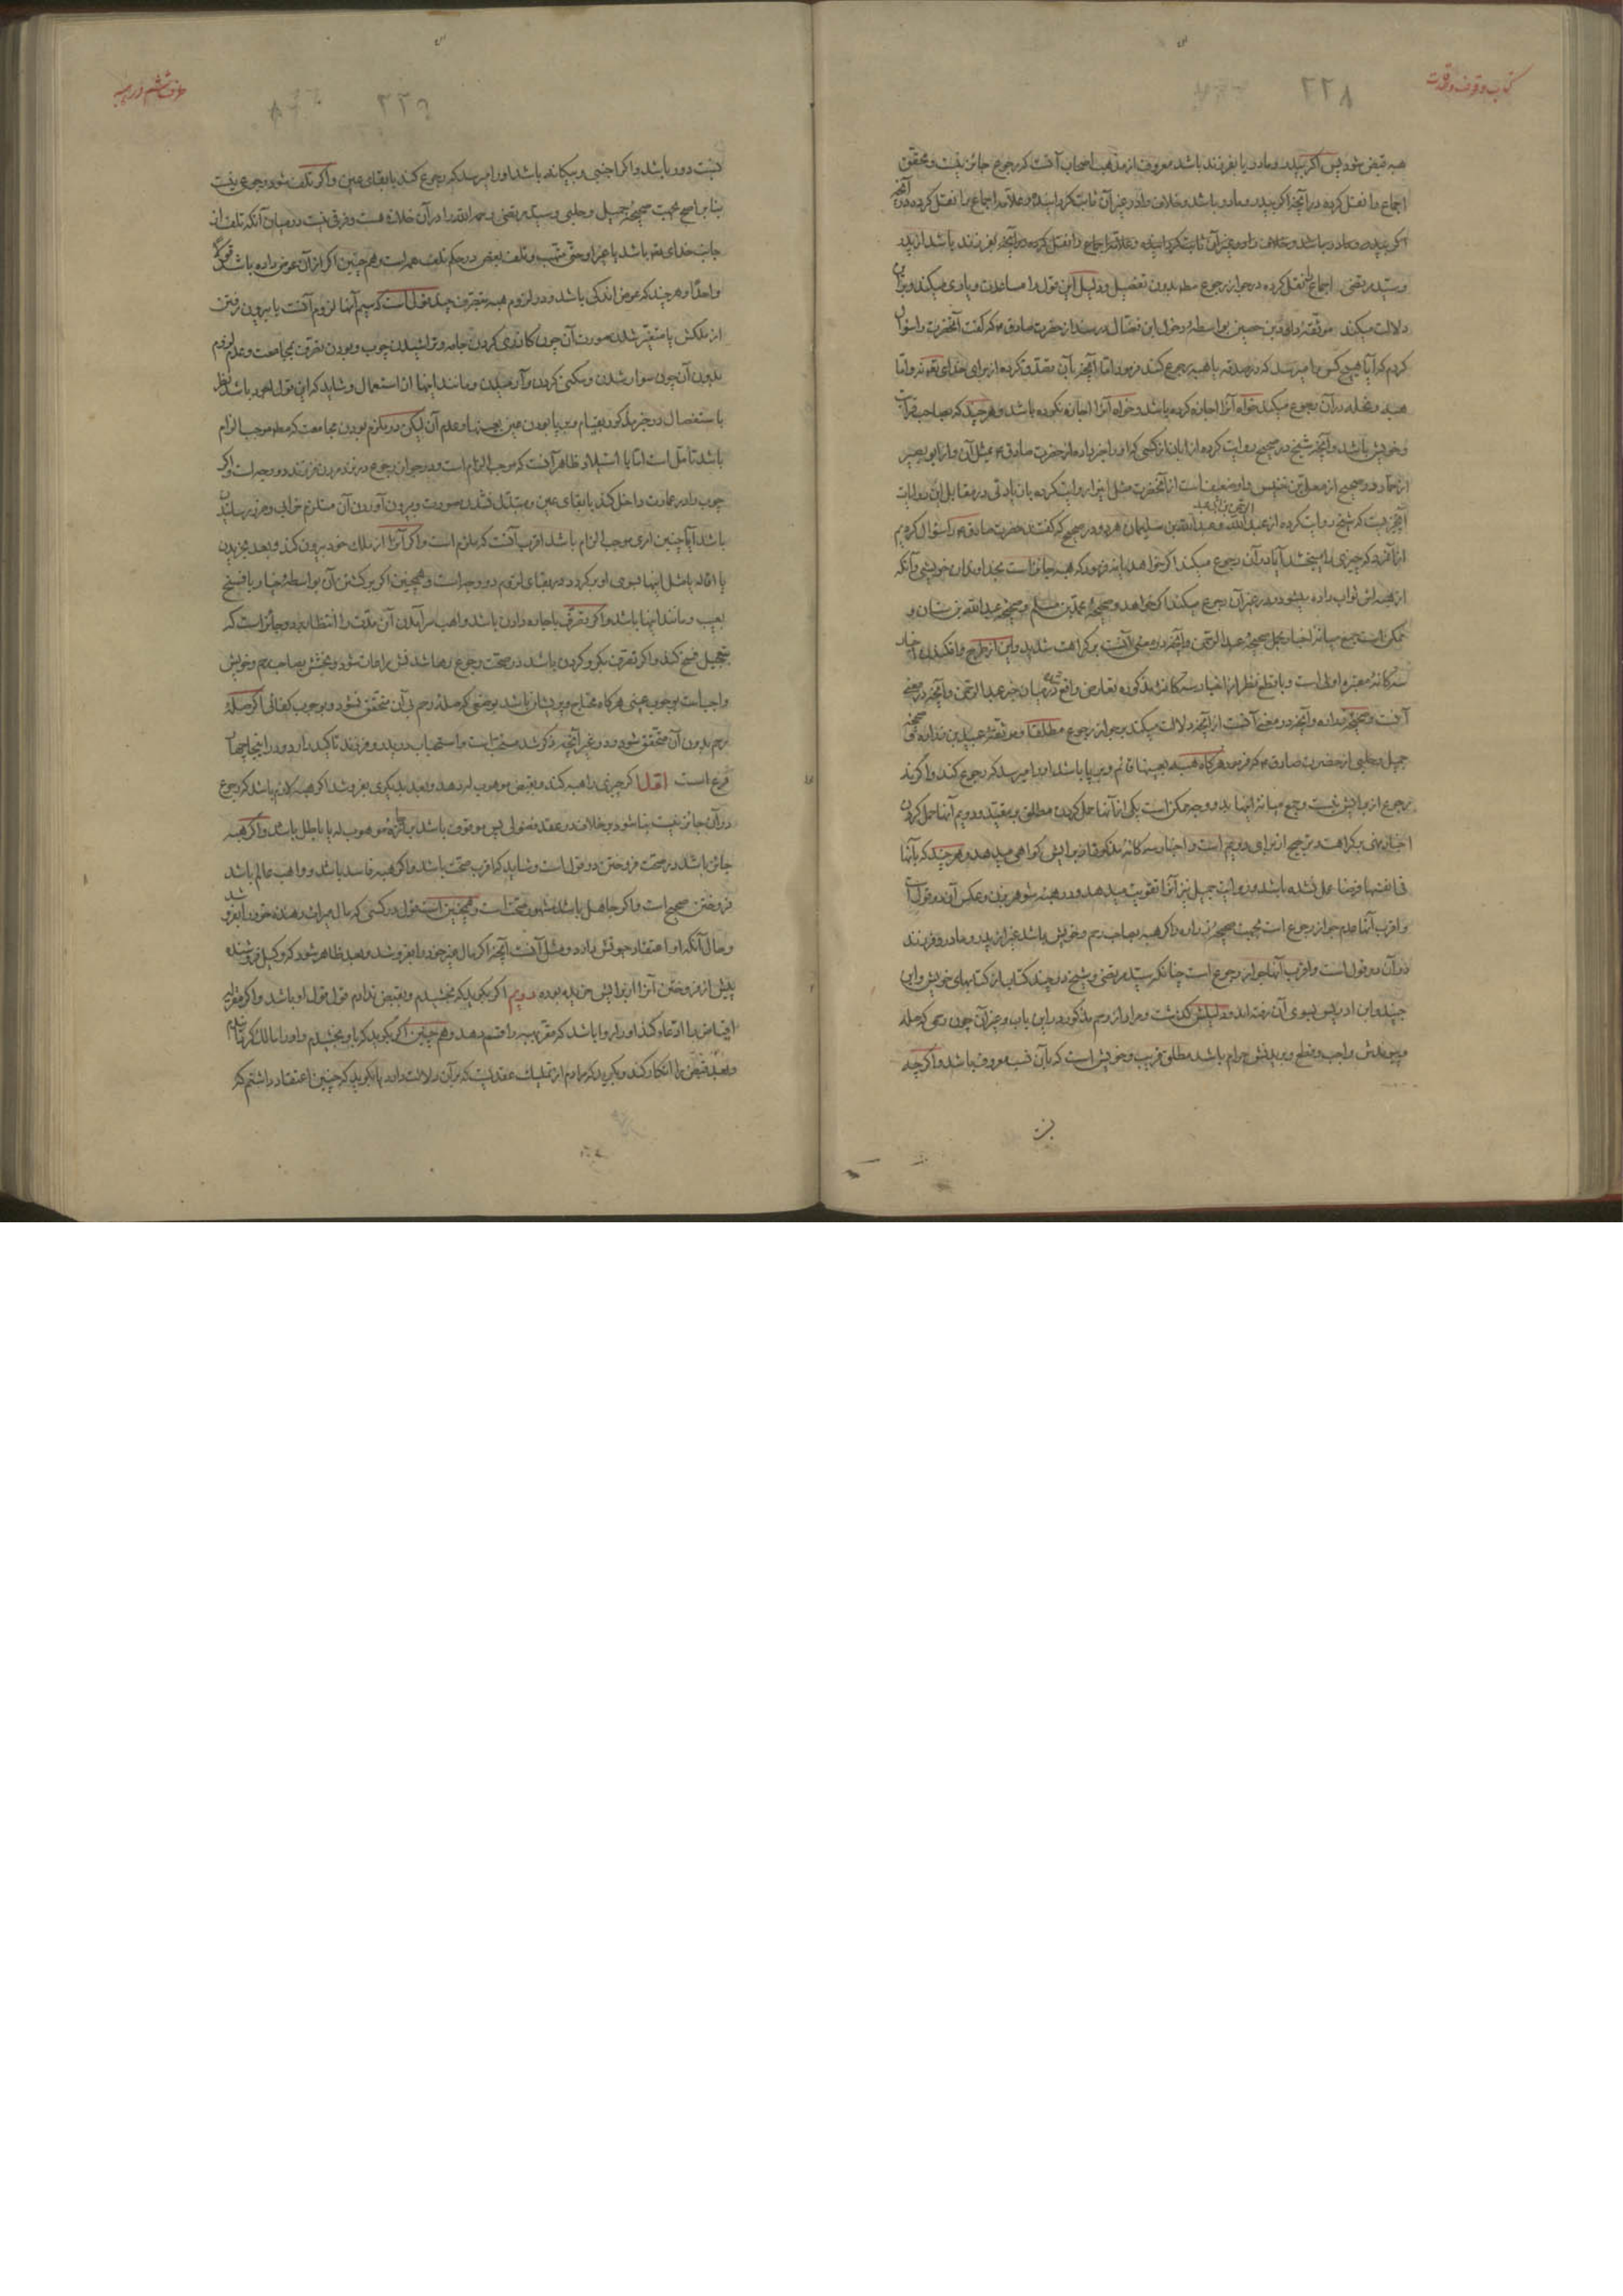 کتاب وقوف و صدقات
۲۲۸
هبه قبض شود پس اگر بپدر و مادر یا بفرزند باشد معروف از مذهب اصحاب آنست که رجوع جائز نیست و محقق
اجماع را نقل کرده در آنچه اگر بپدر و مادر باشد و خلاف را در غیر آن ثابت کرده و علامه اجماع را نقل کرده در آنچه
اگر بپدر و مادر باشد و خلاف را در غیر آن ثابت گردانیده و علامه اجماع را نقل کرده در آنچه بفرزند باشد از پدر
و سید مرتضی اجماع نقل کرده در جواز رجوع مطلقا بدون تفصیل و دلیل این قول را مساعدت و یاری میکند و بران
دلالت میکند موثقه داود بن حصین بواسطه دخول ابن فضال در سند از حضرت صادق ع که گفت آنحضرت را سؤال
کردم که آیا هیچ کس را میرسد که در صدقه یا هبه رجوع کند فرمود اما آنچه بآن تصدق کرده از برای خدای تع نه و اما
هبه و نحله در آن رجوع میکند خواه آنرا اجازه کرده باشد و خواه آنرا اجازه نکرده باشد و هرچند که بصاحب قرابت
و خویش باشد و آنچه شیخ در صحیح روایت کرده از ابان از کسی که او را خبر داده از حضرت صادق ع بمثل آن و از ابو بصیر
از حماد و در صحیح از معلی بن خنیس و او ضعیف است از آنحضرت مثل این را روایت کرده با زیادتی و در مقابل این روایات
آنچیزیست که شیخ روایت کرده از عبد الرحمن بن ابی عبد الله و عبد الله بن سلیمان هر دو در صحیح که گفتند حضرت صادق ع را سؤال کردیم
از آنمرد که چیزی را میبخشد آیا در آن رجوع میکند اگر خواهد یا نه فرمود که هبه جائز است بخداوندان خویشی و آنکه
از هبه اش ثواب داده میشود و در غیر آن رجوع میکند اگر خواهد و صحیحه محمد بن مسلم و صحیحه عبد الله بن سنان و
ممکن است جمع میانه اخبار بحمل صحیحه عبد الرحمن و آنچه در معنی آنست بر کراهت شدید و این از طرح و افکندن اخبار
سه گانه معتبره اولی است و با قطع نظر از اخبار سه گانه مذکوره تعارض واقع میشود در میان خبر عبد الرحمن و آنچه در معنی
آنست و صحیحه زراره و آنچه در معنی آنست از آنچه دلالت میکند بر جواز رجوع مطلقا و موثقه عبید بن زراره و صحیحه
جمیل و حلبی از حضرت صادق ع که فرمود هرگاه هبه بعینها قائم و برپا باشد او را میرسد که رجوع کند و اگر نه
رجوع از برایش نیست و جمع میانه اینها بدو وجه ممکن است یکی از آنها حمل کردن مطلق بر مقید و دویم آنها حمل کردن
اخبار نهی بر کراهت و ترجیح از برای دویم است و اخبار سه گانه مذکوره از برایش گواهی میدهد و هرچند که بآنها
فی انفسها فرضا عمل نشده باشد و روایت جمیل نیز آنرا تقویت میدهد و در هبه شوهر بزن و عکس آن دو قول است
و اقرب آنها عدم جواز رجوع است بجهت صحیحه زراره و اگر هبه بصاحب رحم و خویش باشد غیر از پدر و مادر و فرزند
در آن دو قول است و اقرب آنها جواز رجوع است چنانکه سید مرتضی و شیخ در چند کتاب از کتابهای خویش و ابن
جنید و ابن ادریس بسوی آن رفته اند و دلیلش گذشت و مراد از رحم مذکور در این باب و جز آن چون رحمی که صله
و پیوندش واجب و قطع و بریدنش حرام باشد مطلق قریب و خویش است که بآن نسب معروف باشد و اگرچه
حرف ششم در هبه
۲۲۹
نسبت دور باشد و اگر اجنبی و بیگانه باشد او را میرسد که رجوع کند با بقای عین و اگر تلف شود رجوعی نیست
بنا بر اصح بجهت صحیحه جمیل و حلبی و سید مرتضی رحمه الله را در آن خلاف هست و فرقی نیست در میان آنکه تلف از
جانب خدای تع باشد یا غیر او حتی متهب و تلف بعض در حکم تلف همه است و همچنین اگر از آن عوض داده باشد قولا
واحدا و هرچند که عوض اندکی باشد و در لزوم هبه بتصرف چند قول است که سیم آنها لزوم آنست با بیرون رفتن
از ملکش یا متغیر شدن صورت آن چون گازری کردن جامه و تراشیدن چوب و بودن تصرف بمجامعت و عدم لزوم
بدون آن چون سوار شدن و سکنی کردن و آرمیدن و مانند اینها از استعمال و شاید که این قول اجود باشد نظر
باستفصال در خبر مذکور بقیام و برپا بودن عین بعینها و عدم آن لیکن در ملزم بودن مجامعت که مطلقا موجب الزام
باشد تأمل است اما با استیلاد ظاهر آنست که موجب الزام است و در جواز رجوع در فرزند بدون فرزند دو وجه است و اگر
چوب را در عمارت داخل کند با بقای عین و مبتدل نشدن صورت و بیرون آوردن آن مستلزم خرابی و ضرر رسانیدن
باشد آیا چنین امری موجب الزام باشد اقرب آنست که ملزم است و اگر آنرا از ملک خود بیرون کند و بعد بخریدن
یا اقاله یا مثل اینها بسوی او برگردد در بقای لزوم دو وجه است و همچنین اگر برگشتن آن بواسطه خیار یا فسخ
بعیب و مانند اینها باشد و اگر تصرف باجاره دادن باشد واهب سرآمدن آن مدت را انتظار برد و جائز است که
بتعجیل فسخ کند و اگر تصرف بگرو کردن باشد در صحت رجوع رها شدنش مراعات شود و بخشش بصاحب رحم و خویش
واجب است بوجوب عینی هرگاه محتاج و پریشان باشد بوضعی که صله رحم بی آن متحقق نشود و بوجوب کفائی اگر صله
رحم بدون آن متحقق شود و در غیر آنچه مذکور شد سنت است و استحباب در پدر و فرزند تاکید دارد و در اینجا چهار
فرع است اول اگر چیزی را هبه کند و بقبض موهوب له دهد و بعد بدیگری بفروشد اگر هبه لازم باشد که رجوع
در آن جائز نیست بنا شود بر خلاف در عقد فضولی پس موقوف باشد بر اجازه موهوب له یا باطل باشد و اگر هبه
جائز باشد در صحت فروختن دو قول است و شاید که اقرب صحت باشد و اگر هبه فاسد باشد و واهب عالم باشد
فروختن صحیح است و اگر جاهل باشد مشهور صحت است و همچنین است قول در کسی که مال میراث دهنده خود را بفروشد
و حال آنکه او اعتقاد حیوتش دارد و مثل آنست آنچه اگر مال غیر خود را بفروشد و بعد ظاهر شود که وکیل فروشنده
پیش از فروختن آنرا از برایش خریده بوده دویم اگر بگوید که بخشیدم و بقبض ندادم قول قول او باشد و اگر مقر له
اقباض را ادعا کند او را روا باشد که مقر بهبه را قسم دهد و همچنین اگر بگوید که باو بخشیدم و او را مالک گردانیدم
و بعد قبض را انکار کند و بگوید که مرادم از تملیک عقدیست که بر آن دلالت دارد یا بگوید که چنین اعتقاد داشتم که